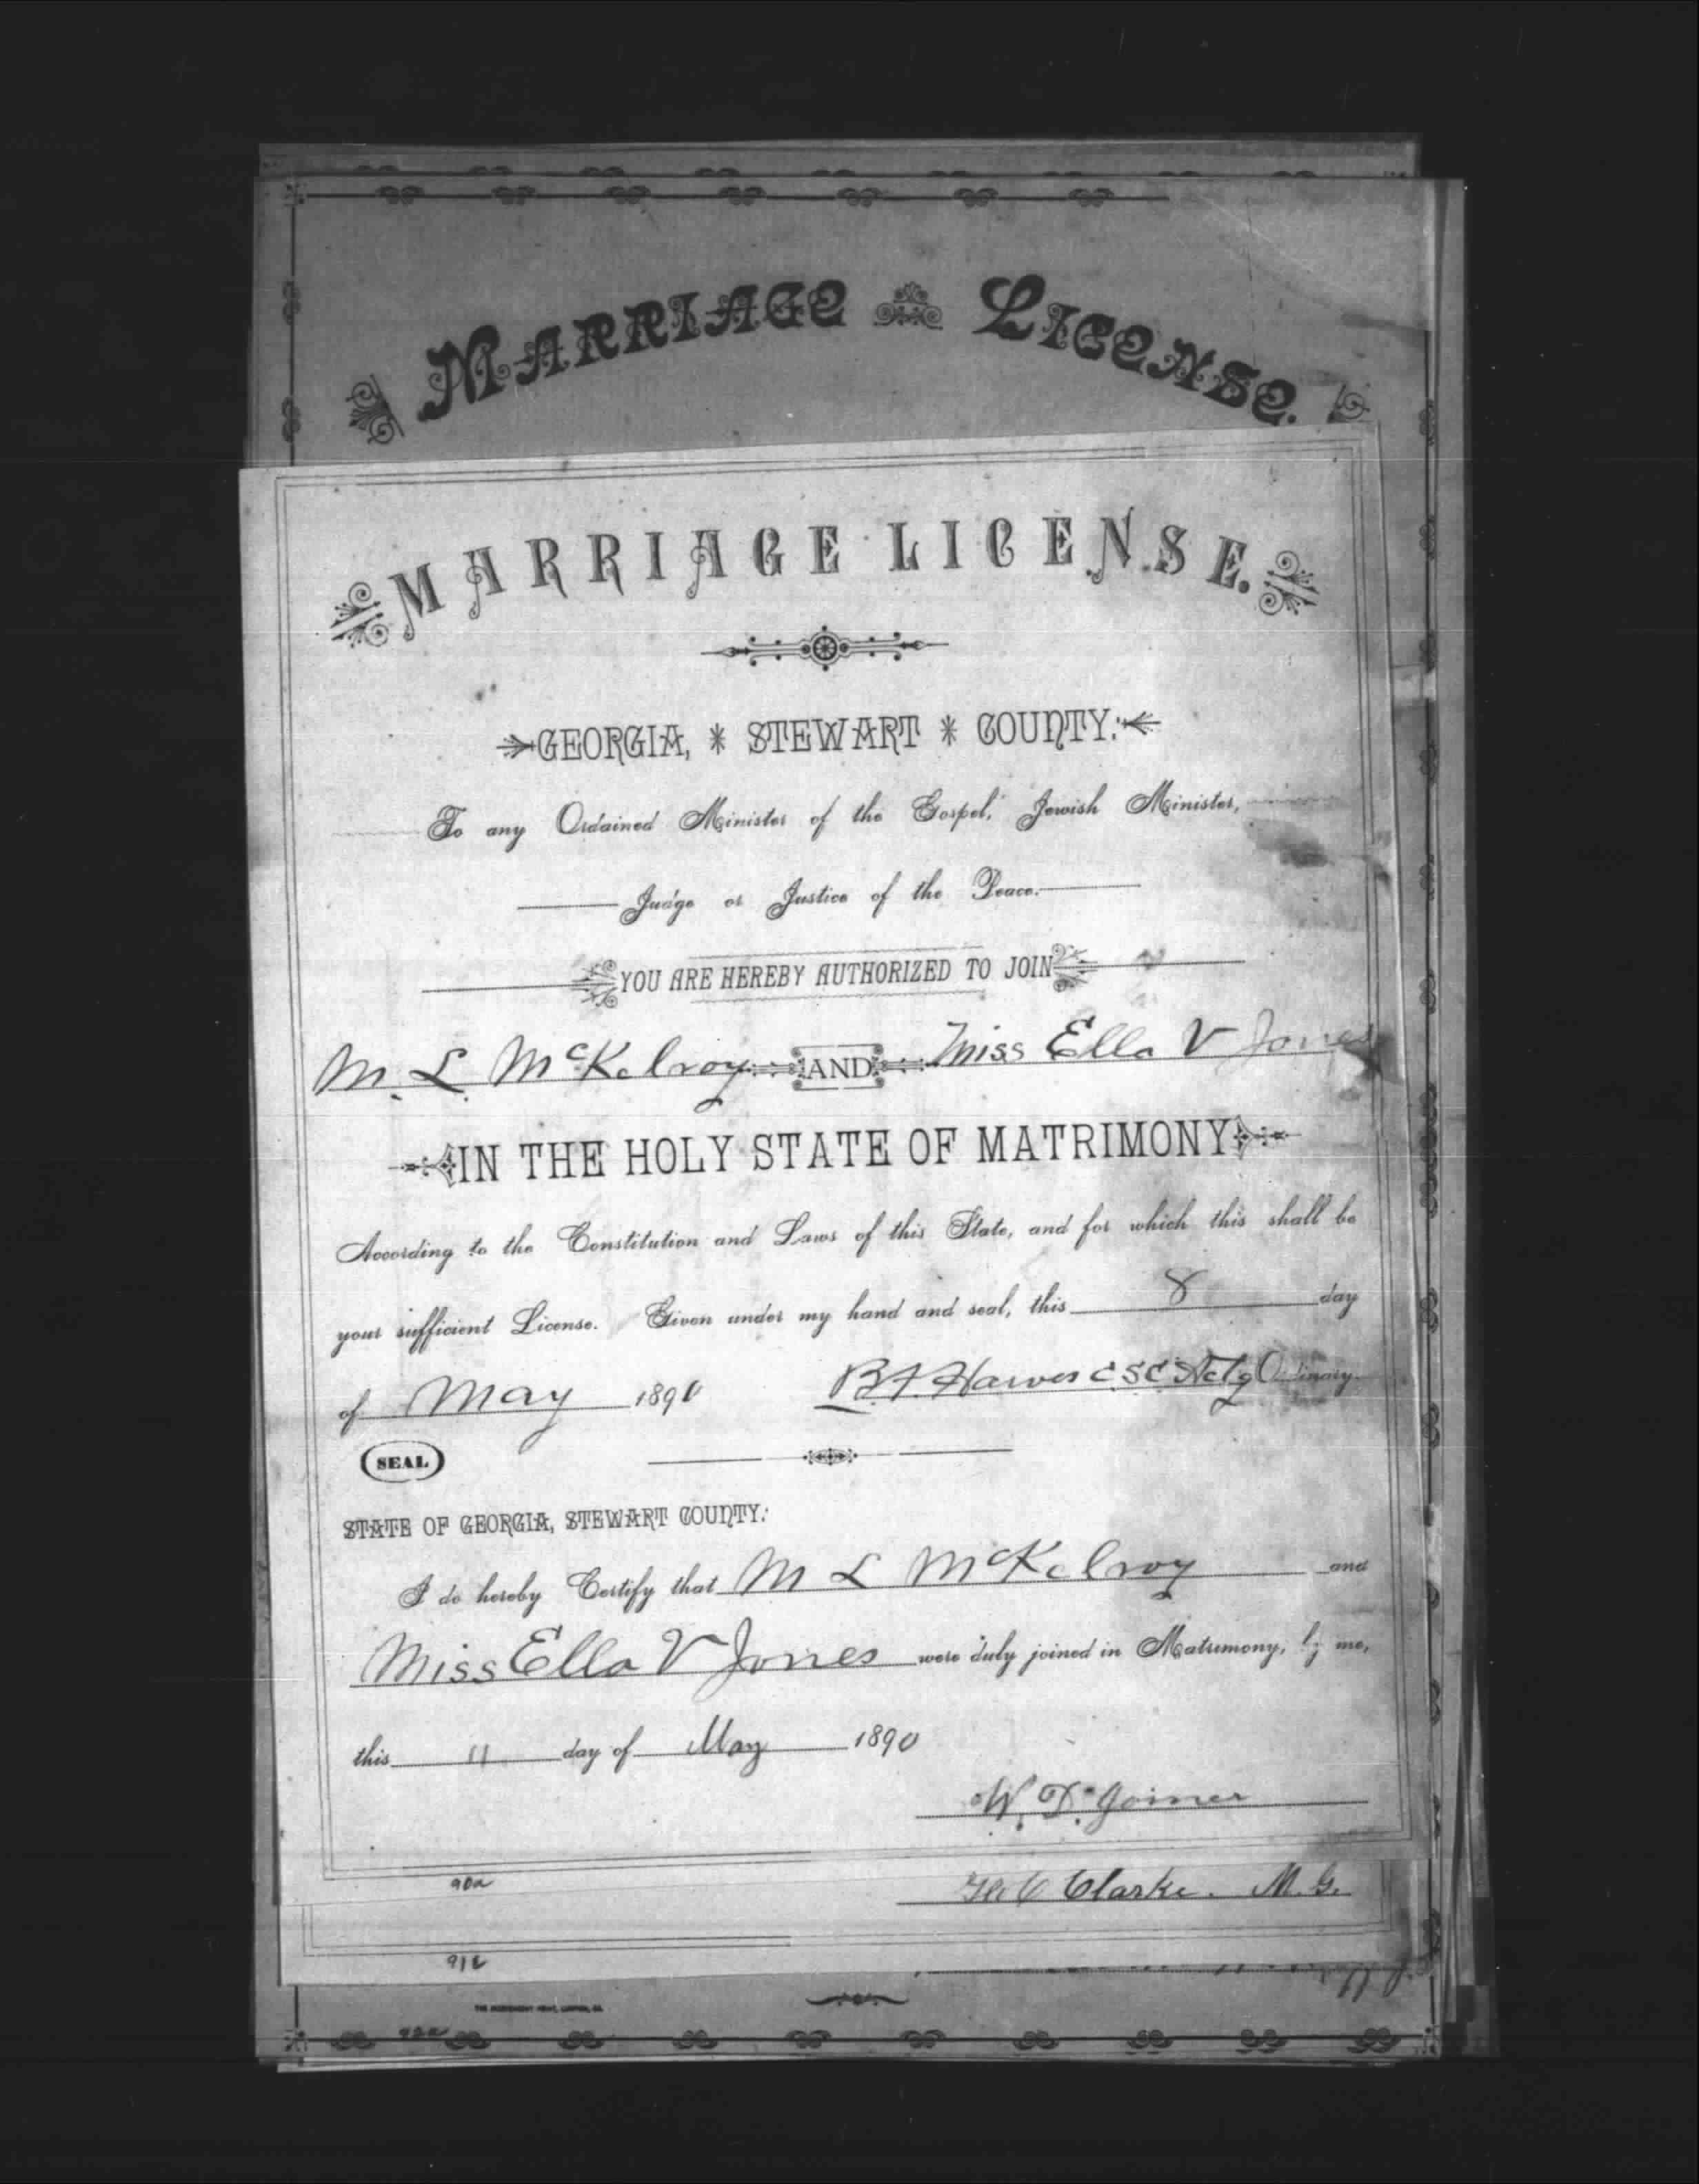 MARRIAGE LICENSE.
MARRIAGE LICENSE.
GEORGIA, * STEWART * COUNTY:
To any Ordained Minister of the Gospel, Jewish Minister,
Judge or Justice of the Peace.
YOU ARE HEREBY AUTHORIZED TO JOIN
M. L. McKelroy AND Miss Ella V Jones
IN THE HOLY STATE OF MATRIMONY
According to the Constitution and Laws of this State, and for which this shall be
your sufficient License. Given under my hand and seal, this 8 day
of May 1890 B F Hawes C S C Actg Ordinary.
SEAL
STATE OF GEORGIA, STEWART COUNTY:
I do hereby Certify that M L McKelroy and
Miss Ella V Jones were duly joined in Matrimony, by me,
this 11 day of May 1890
W. D. Joiner
90a
Clarke. M. G.